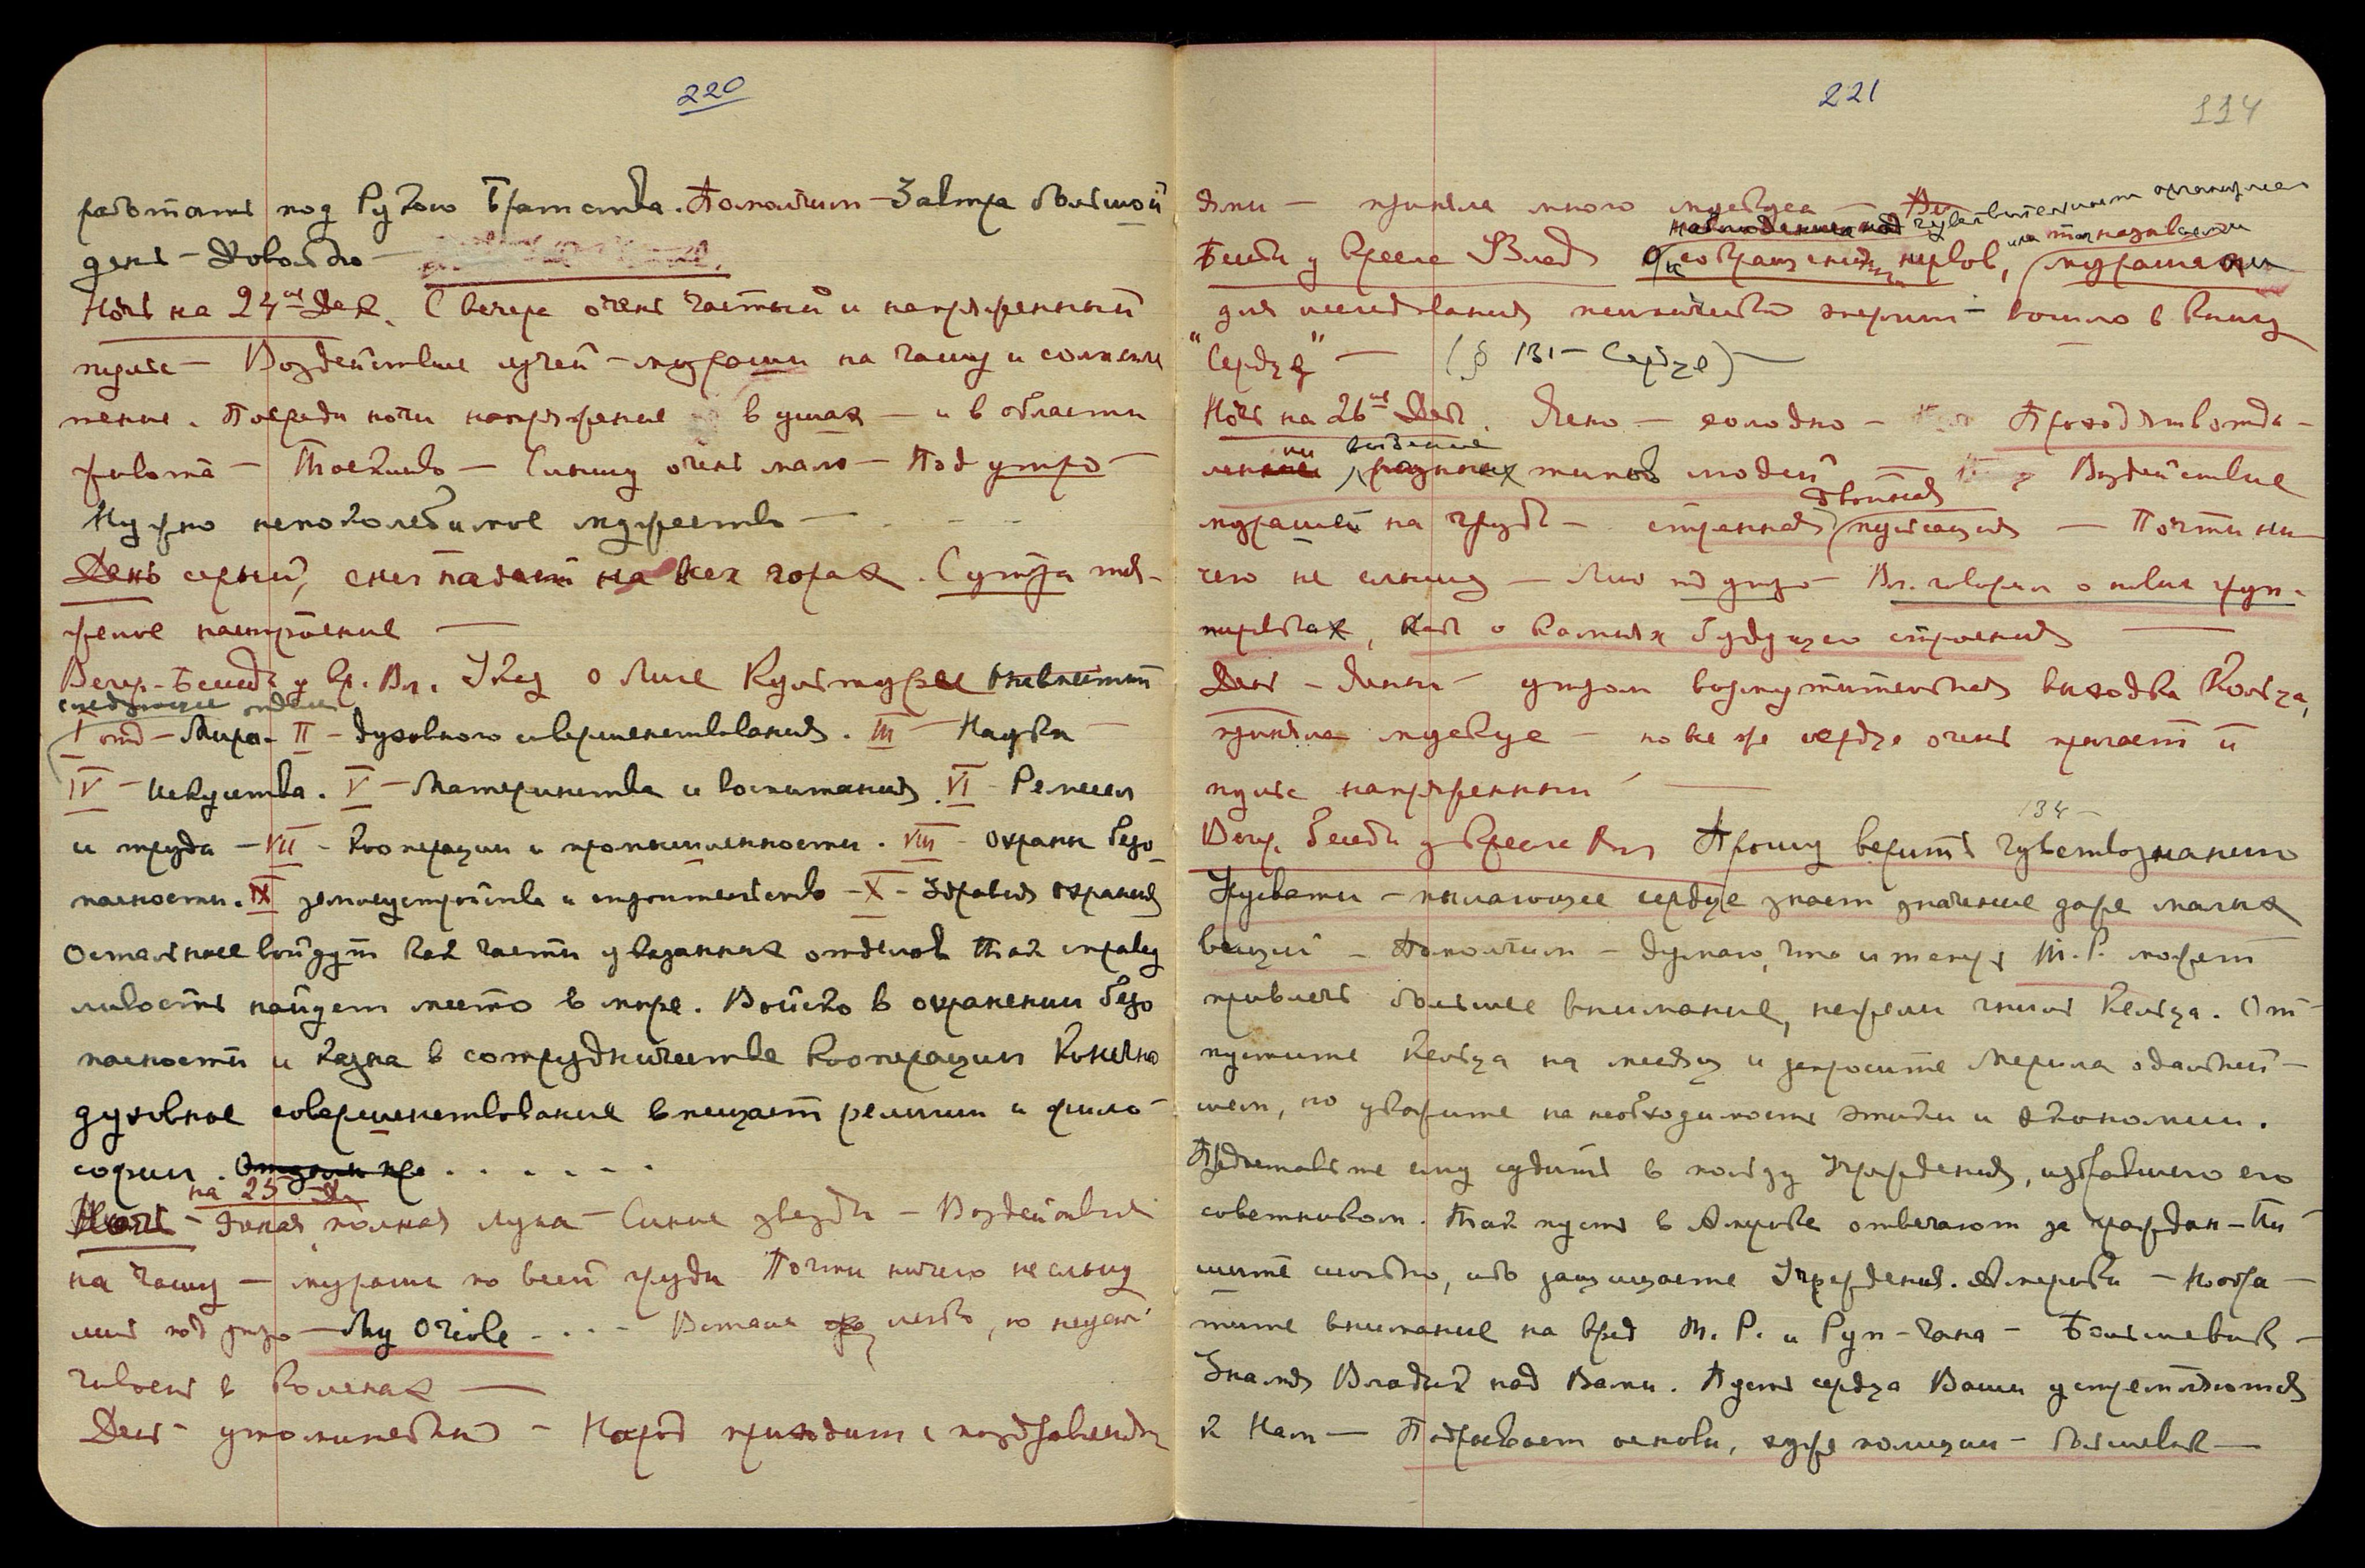 220
работать под Рукою Братства. Помолчим – Завтра большой
день – Довольно –
Ночь на 24ое Дек. С вечера очень частый и напряженный
пульс – Воздействие лучей – мураши на чашу и солнечн.
тение. Посреди ночи напряжение в ушах – и в области
живота – Тоскливо – Слышу очень мало – Под утро –
Нужно непоколебимое мужество –
День серый, снег падает на всех горах. Сутра тя-
желое настроение –
Вечер. Беседа у Кр. Вл. Указ о Лиге Культуры
следующие отделы
I отд – Мира – II – духовного совершенствования. III – Науки
IV – Искусства. V – Материнства и воспитания. VI – Ремесел
и труда – VII – Кооперации и промышленности. VIII – Охраны безо-
пасности. IX землеустройства и строительства – X – Здравия охрания
Остальное войдут как части указанных отделов Так справед
ливость найдет место в мире. Войско в охранении безо
пасности и Казна в сотрудничестве Кооперации Конечно
духовное совершенствование вмещает религии и фило-
софии. . . . . . .
на 25
Ночь – Ясная, полная луна – Синие звезды – Воздействия
на чашу – мураши по всей груди Почти ничего не слышу
лишь под утро – My Oriole – . . – Встала легко, но неустой
чивость в коленах –
День – утомительный – Народ приходит с поздравлени
221
114
ями – приняла много мускуса –
наблюдения над чувствительным организмом
Беседа у Кресла Влад. О сокращении нервов, или так называемом мурашами
для исследования психической энергии – вошло в книгу
"Сердце" – (§ 131 – Сердце) –
Ночь на 26ое Дек. Ясно – холодно – Проходят вотда-
лении видение разных типов людей – Воздействие
мурашей на груди – странная двойная пульсация – Почти ни-
чего не слышу – Лишь под утро – Вл. говорил о новых груп-
пировках, как о камнях будущего строения –
День – Ясный – утром возмутительная выходка Кольца,
приняла мускус – но все же сердце очень прыгает и
пульс напряженный –
134 –
Вечер. беседа у Кресла Вл. Прошу верить чувствознанию
Урусвати – пылающее сердце знает значение даже малых
вещей – Помолчим – Думаю, что и теперь Т.Р. может
привлечь большее внимание, нежели гниль Кельца. От
пустите Кельца на месяц и запросите Мерила одальней-
шем, но укажите на необходимость этики и экономии.
Предоставьте ему судить в пользу Учреждения, избравшего его
советником. Так пусть в Америке отвечают за граждан – Пи
шите сильно, ибо защищаете Учреждения. Америки – Нообра-
тите внимание на вред Т.Р. и Руп-чана – Большевик –
Знамя Владык над Вами. Пусть сердца Ваши устремляются
к Нам – Подрывает основы, хуже полиции – большевик –